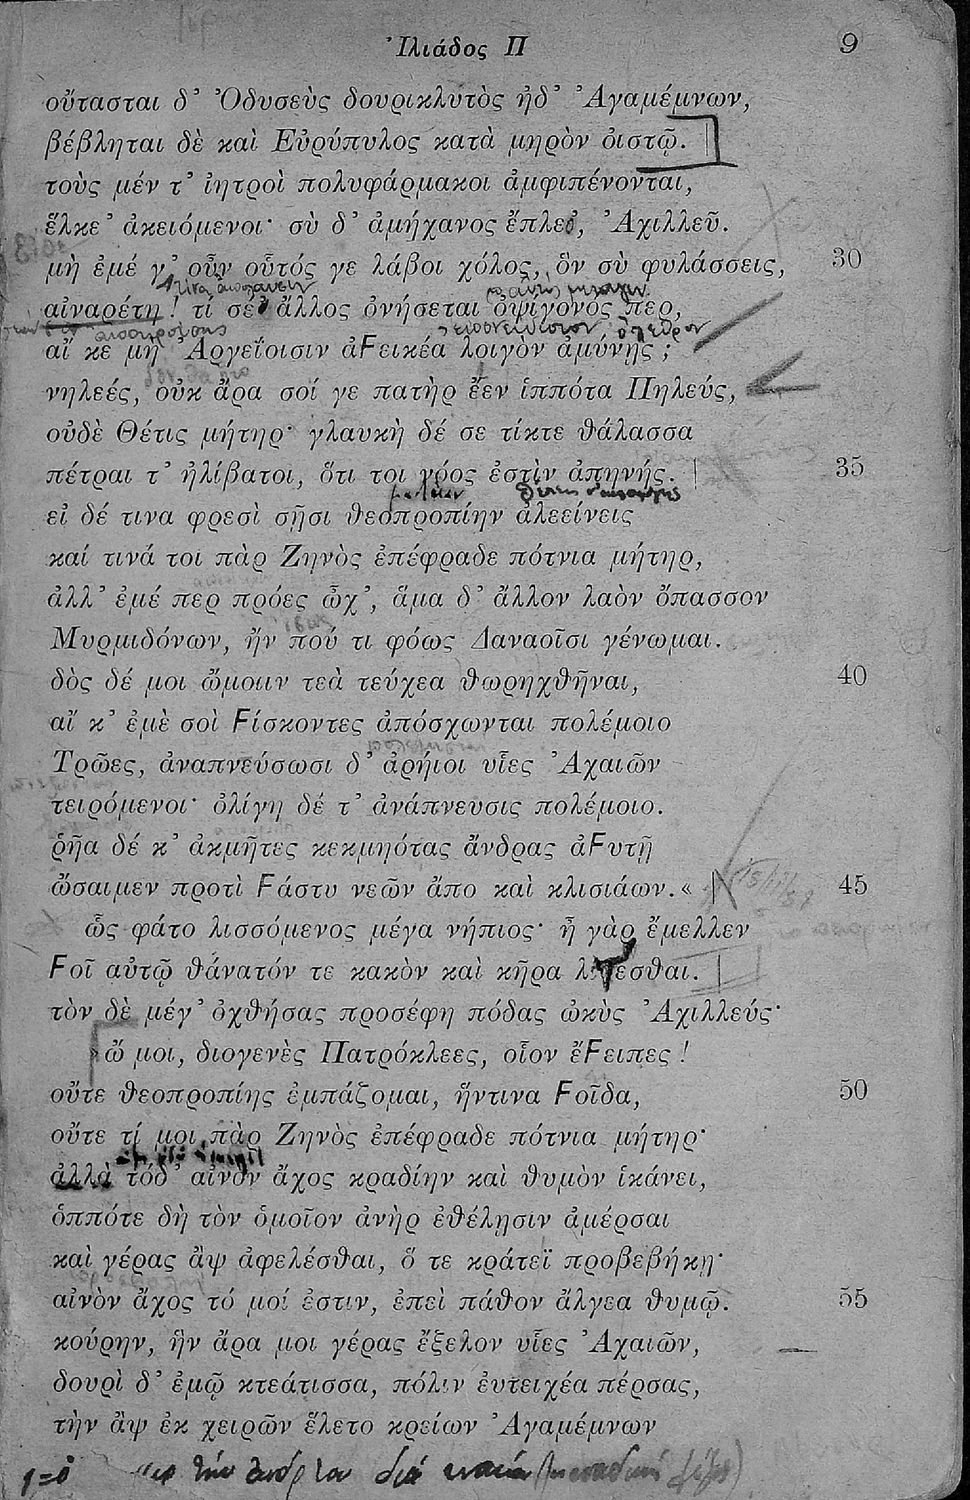 Ἰλιάδος Π 9
οὔτασται δ’ Ὀδυσεὺς δουρικλυτὸς ἠδ’ Ἀγαμέμνων,
βέβληται δὲ καὶ Εὐρύπυλος κατὰ μηρὸν ὀιστῷ.
τοὺς μέν τ’ ἰητροὶ πολυφάρμακοι ἀμφιπένονται,
ἕλκε’ ἀκειόμενοι· σὺ δ’ ἀμήχανος ἔπλεο, Ἀχιλλεῦ.
μὴ ἐμέ γ’ οὖν οὗτός γε λάβοι χόλος, ὃν σὺ φυλάσσεις, 30
αἰναρέτη! τί σέο ἄλλος ὀνήσεται ὀψίγονός περ,
αἴ κε μὴ Ἀργείοισιν ἀϜεικέα λοιγὸν ἀμύνῃς;
νηλεές, οὐκ ἄρα σοί γε πατὴρ ἔεν ἱππότα Πηλεύς,
οὐδὲ Θέτις μήτηρ· γλαυκὴ δέ σε τίκτε θάλασσα
πέτραι τ’ ἠλίβατοι, ὅτι τοι νόος ἐστὶν ἀπηνής. 35
εἰ δέ τινα φρεσὶ σῇσι θεοπροπίην ἀλεείνεις
καί τινά τοι πὰρ Ζηνὸς ἐπέφραδε πότνια μήτηρ,
ἀλλ’ ἐμέ περ πρόες ὦχ’, ἅμα δ’ ἄλλον λαὸν ὄπασσον
Μυρμιδόνων, ἤν πού τι φόως Δαναοῖσι γένωμαι.
δὸς δέ μοι ὤμοιιν τεὰ τεύχεα θωρηχθῆναι, 40
αἴ κ’ ἐμὲ σοὶ Ϝίσκοντες ἀπόσχωνται πολέμοιο
Τρῶες, ἀναπνεύσωσι δ’ ἀρήιοι υἷες Ἀχαιῶν
τειρόμενοι· ὀλίγη δέ τ’ ἀνάπνευσις πολέμοιο.
ῥῆα δέ κ’ ἀκμῆτες κεκμηότας ἄνδρας ἀϜυτῇ
ὤσαιμεν προτὶ Ϝάστυ νεῶν ἄπο καὶ κλισιάων.« 45
ὣς φάτο λισσόμενος μέγα νήπιος· ἦ γὰρ ἔμελλεν
Ϝοῖ αὐτῷ θάνατόν τε κακὸν καὶ κῆρα λιτέσθαι.
τὸν δὲ μέγ’ ὀχθήσας προσέφη πόδας ὠκὺς Ἀχιλλεύς·
»ὤ μοι, διογενὲς Πατρόκλεες, οἷον ἔϜειπες!
οὔτε θεοπροπίης ἐμπάζομαι, ἥντινα Ϝοῖδα, 50
οὔτε τί μοι πὰρ Ζηνὸς ἐπέφραδε πότνια μήτηρ·
ἀλλὰ τόδ’ αἰνὸν ἄχος κραδίην καὶ θυμὸν ἱκάνει,
ὁππότε δὴ τὸν ὁμοῖον ἀνὴρ ἐθέλῃσιν ἀμέρσαι
καὶ γέρας ἂψ ἀφελέσθαι, ὅ τε κράτεϊ προβεβήκῃ·
αἰνὸν ἄχος τό μοί ἐστιν, ἐπεὶ πάθον ἄλγεα θυμῷ. 55
κούρην, ἣν ἄρα μοι γέρας ἔξελον υἷες Ἀχαιῶν,
δουρὶ δ’ ἐμῷ κτεάτισσα, πόλιν ἐυτειχέα πέρσας,
τὴν ἂψ ἐκ χειρῶν ἕλετο κρείων Ἀγαμέμνων